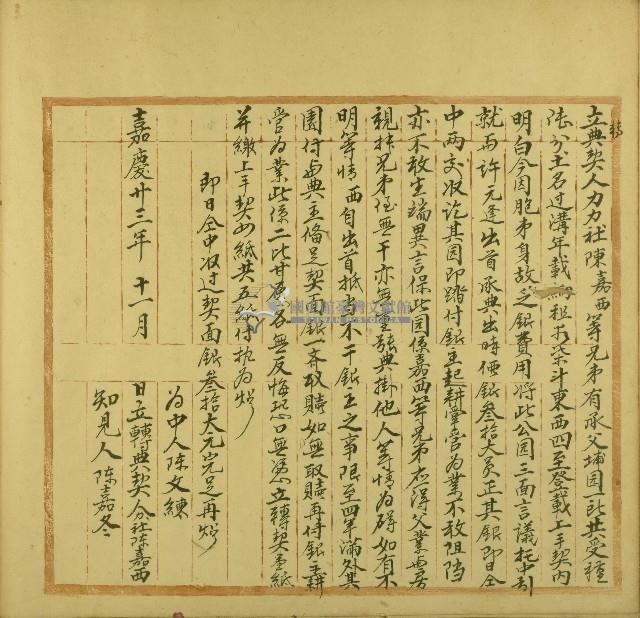 立典契人力力社陳嘉西等兄弟有承父埔园一所共受種
陸分土名过溝年載納租〻〻斗東西四至登載上手契內
明白今因胞弟身故乏銀費用將此公园三面言議托中引
就与許元逢出首承典出時價銀叁拾大員正其銀即日仝
中两交收訖其园即踏付銀主起耕掌管為業不敢阻擋
亦不敢生端異言保此园係嘉西等兄弟应得父業与房
親叔兄弟侄無干亦無重張典掛他人等情為碍如有不
明等情西自出首抵当不干銀主之事限至四年滿外其
園付与典主俻足契面銀一齐取贖如無取贖再付銀主耕
管為業此係二比甘愿各無反悔恐口無憑立轉契壹紙
并繳上手契四紙共五紙付执為炤
即日仝中收过契面銀叁拾大元完足再炤
為中人陈文練
嘉慶廿三年十一月 日立轉典契人力社陈嘉西
知見人陈嘉冬
國史館臺灣文獻館
TAIWAN HISTORICA